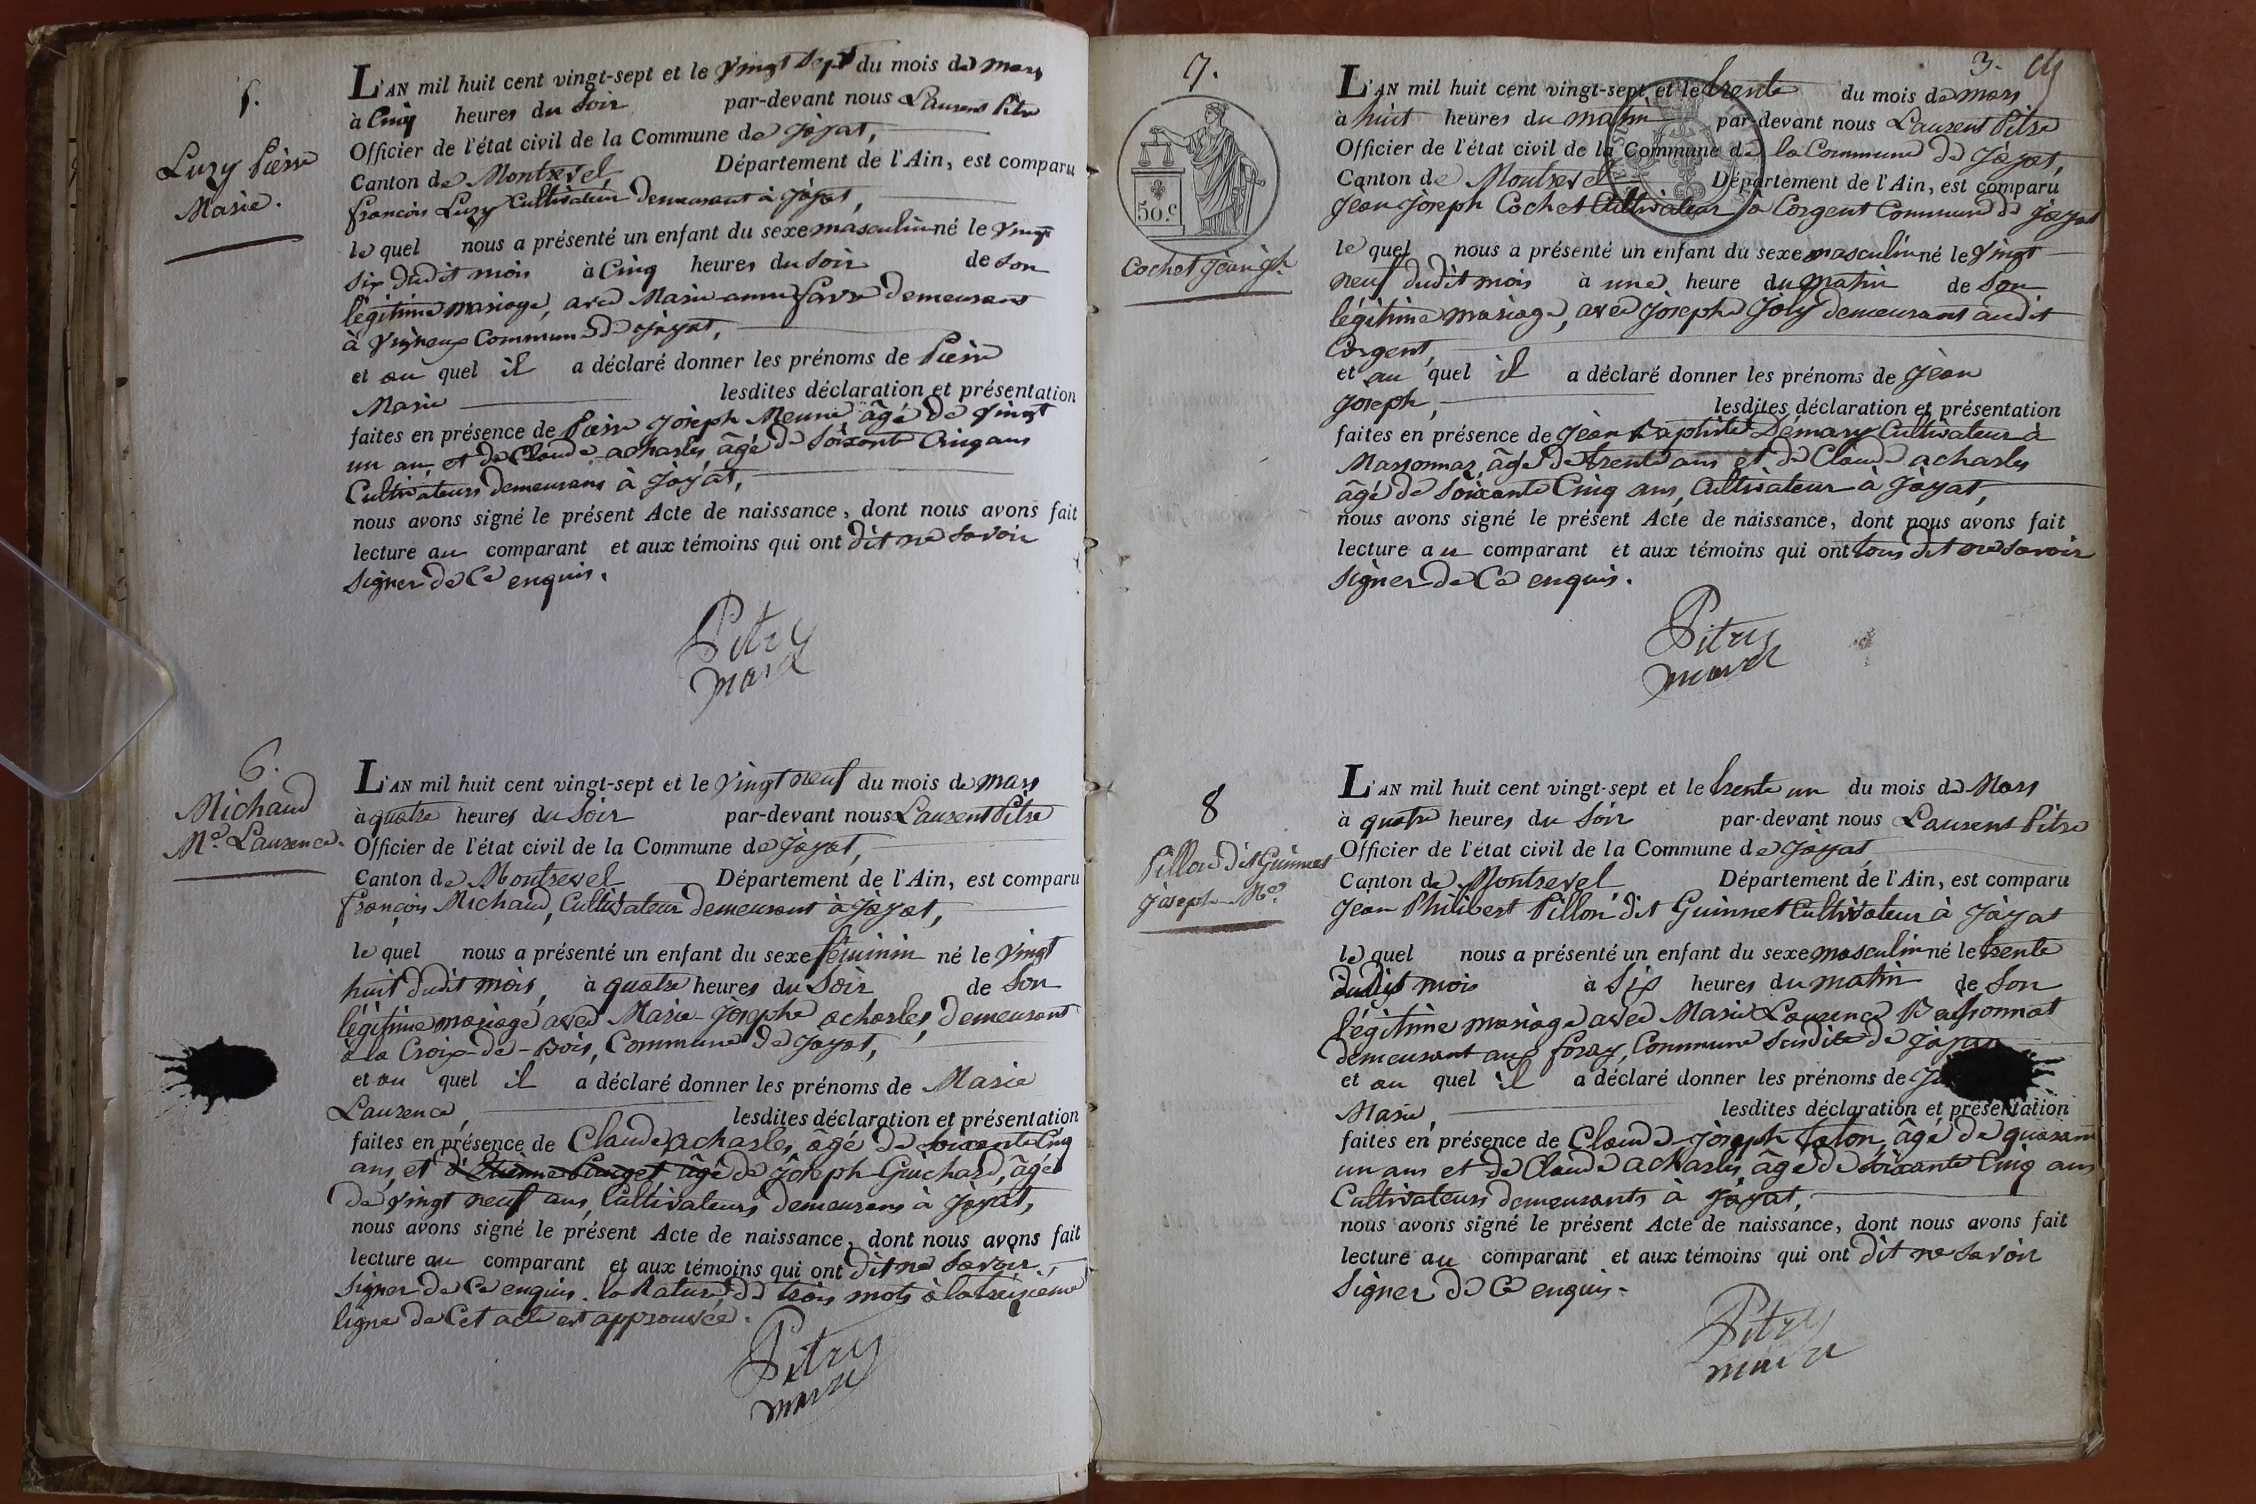 5.
Luzy Pierre
Marie.
L'AN mil huit cent vingt-sept et le vingt sept du mois de mars
à Cinq heures du Soir par-devant nous Laurent Pitre
Officier de l'état civil de la Commune de Jayat,
Canton de Montrevel Département de l'Ain, est comparu
françois Luzy Cultivateur demeurant à Jayat,
le quel nous a présenté un enfant du sexe masculin né le vingt
six dudit mois à Cinq heures du Soir de Son
légitime mariage, avec Marie anne favre demeurant
à Commune de Jayat,
et au quel il a déclaré donner les prénoms de Pierre
Marie lesdites déclaration et présentation
faites en présence de Pierre Joseph âgé de vingt
un an et de Claude acharles, âgé de Soixante Cinq ans
Cultivateurs demeurans à Jayat,
nous avons signé le présent Acte de naissance, dont nous avons fait
lecture au comparant et aux témoins qui ont dit ne Savoir
Signer de Ce enquis.
Pitre
maire
6.
Michaud
Mie Laurence.
L'AN mil huit cent vingt-sept et le vingt neuf du mois de mars
à quatre heures du Soir par-devant nous Laurent Pitre
Officier de l'état civil de la Commune de Jayat,
Canton de Montrevel Département de l'Ain, est comparu
françois Michaud, Cultivateur demeurant à Jayat,
le quel nous a présenté un enfant du sexe féminin né le vingt
huit dudit mois, à quatre heures du Soir de Son
légitime mariage avec Marie-Josephe acharles, demeurant
à la Croix-de-Bois, Commune de Jayat,
et au quel il a déclaré donner les prénoms de Marie
Laurence, lesdites déclaration et présentation
faites en présence de Claude acharles, âgé de Soixante Cinq
ans, et d'Etienne Pauget âgé de Joseph Guichard, âgé
de vingt neuf ans, Cultivateurs demeurans à Jayat,
nous avons signé le présent Acte de naissance, dont nous avons fait
lecture au comparant et aux témoins qui ont dit ne Savoir
Signer de Ce enquis. la Rature de trois mots à la treizieme
ligne de Cet acte est approuvée.
Pitre
maire
3.
7.
50.c
Cochet Jean Jh.
L'AN mil huit cent vingt-sept et le trente du mois de mars
à huit heures du matin par-devant nous Laurent Pitre
Officier de l'état civil de la Commune de la Commune de Jayat,
Canton de Montrevel Département de l'Ain, est comparu
Jean Joseph Cochet Cultivateur à Corgent Commune de Jayat
le quel nous a présenté un enfant du sexe masculin né le vingt
neuf dudit mois à une heure du matin de Son
légitime mariage, avec Josephe Joly demeurant audit
Corgent,
et au quel il a déclaré donner les prénoms de Jean
Joseph, lesdites déclaration et présentation
faites en présence de Jean Baptiste Démary Cultivateur à
Marsonnas, âgé de trente ans et de Claude acharles
âgé de Soixante Cinq ans, Cultivateur à Jayat,
nous avons signé le présent Acte de naissance, dont nous avons fait
lecture au comparant et aux témoins qui ont tous dit ne Savoir
Signer de Ce enquis.
Pitre
maire
8
Pillon dit Guinnet
Joseph Mie.
L'AN mil huit cent vingt-sept et le trente un du mois de Mars
à quatre heures du Soir par-devant nous Laurent Pitre
Officier de l'état civil de la Commune de Jayat
Canton de Montrevel Département de l'Ain, est comparu
Jean Philibert Pillon dit Guinnet Cultivateur à Jayat
le quel nous a présenté un enfant du sexe masculin né le trente
dudit mois à Six heures du matin de Son
légitime mariage avec Marie Laurence
demeurant aux foray, Commune Susdite de Jayat
et au quel il a déclaré donner les prénoms de
Marie, lesdites déclaration et présentation
faites en présence de Claude-Joseph âgé de quarante
un ans et de Claude acharles, âgé de Soixante Cinq ans
Cultivateurs demeurants à Jayat,
nous avons signé le présent Acte de naissance, dont nous avons fait
lecture au comparant et aux témoins qui ont dit ne Savoir
Signer de Ce enquis.
Pitre
maire